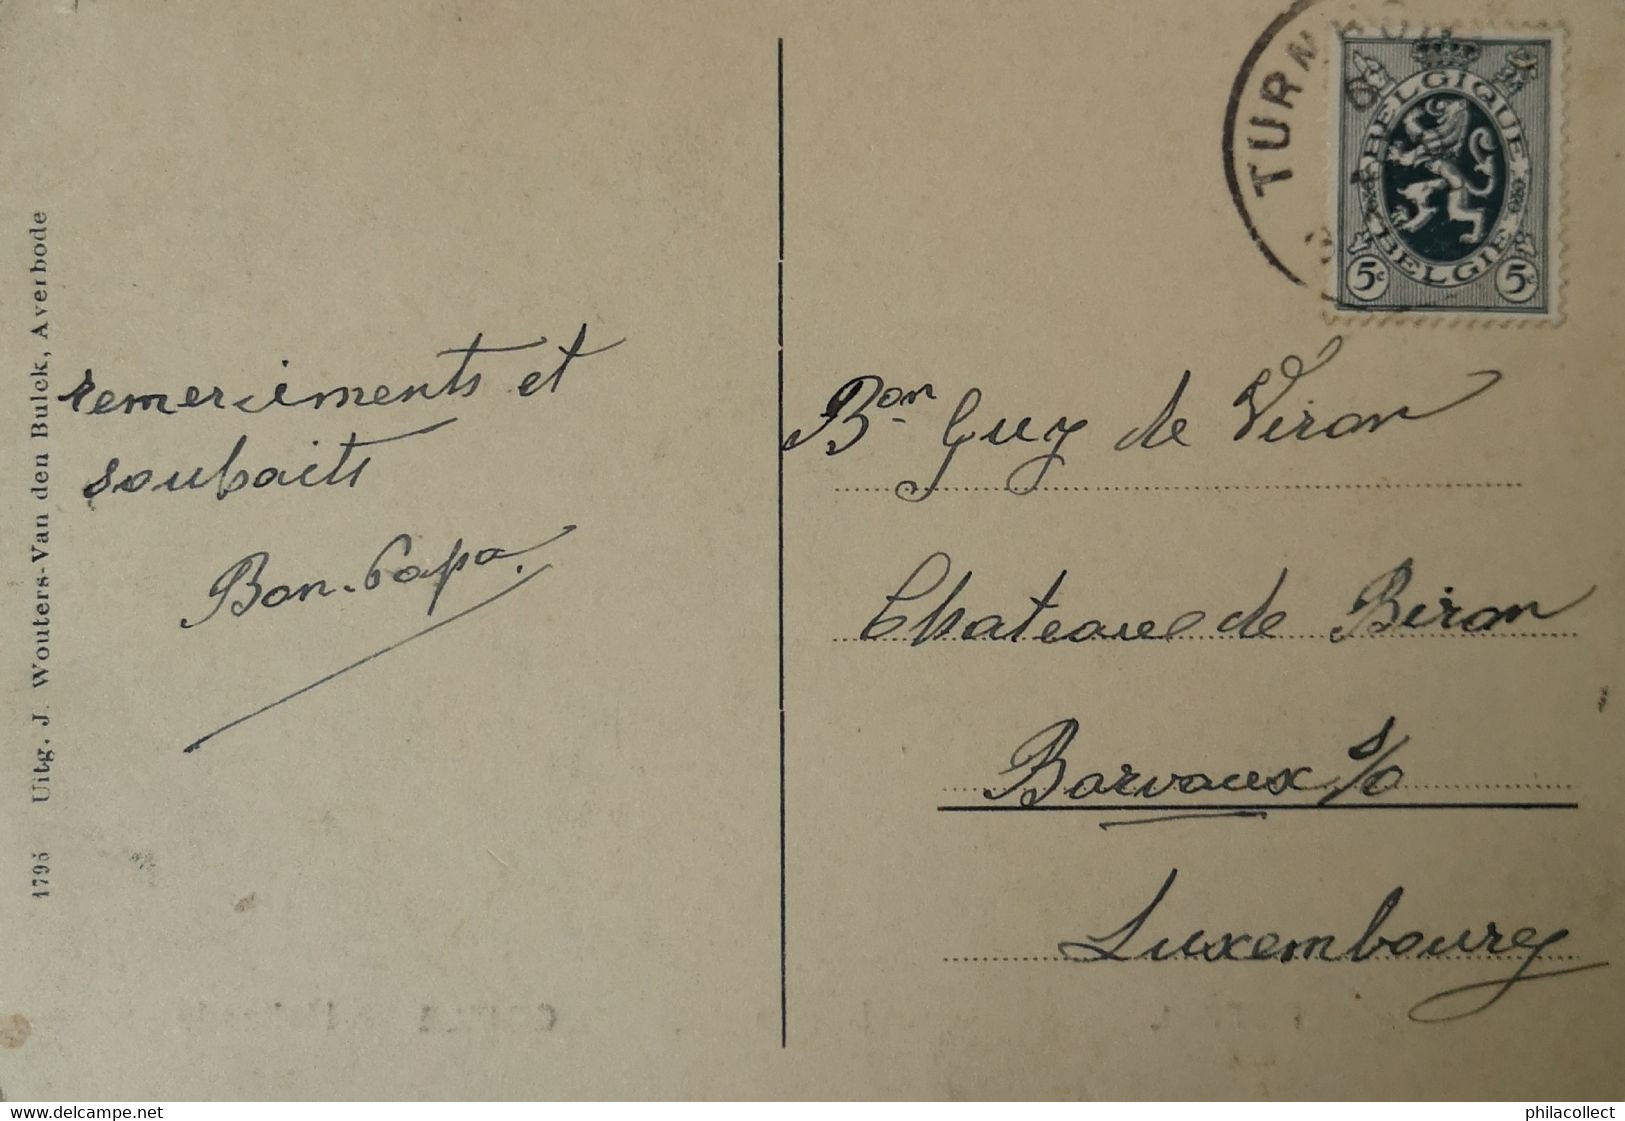 1795 Uitg. J. Wouters-Van den Bulck, Averbode
remerciments et
souhaits
Bon-Papa.
TURNHOUT
BELGIQUE
BELGIË
5c 5c
Bon Guy de Viron
Chateau de Biron
Barvaux s/o
Luxembourg
www.delcampe.net
philacollect